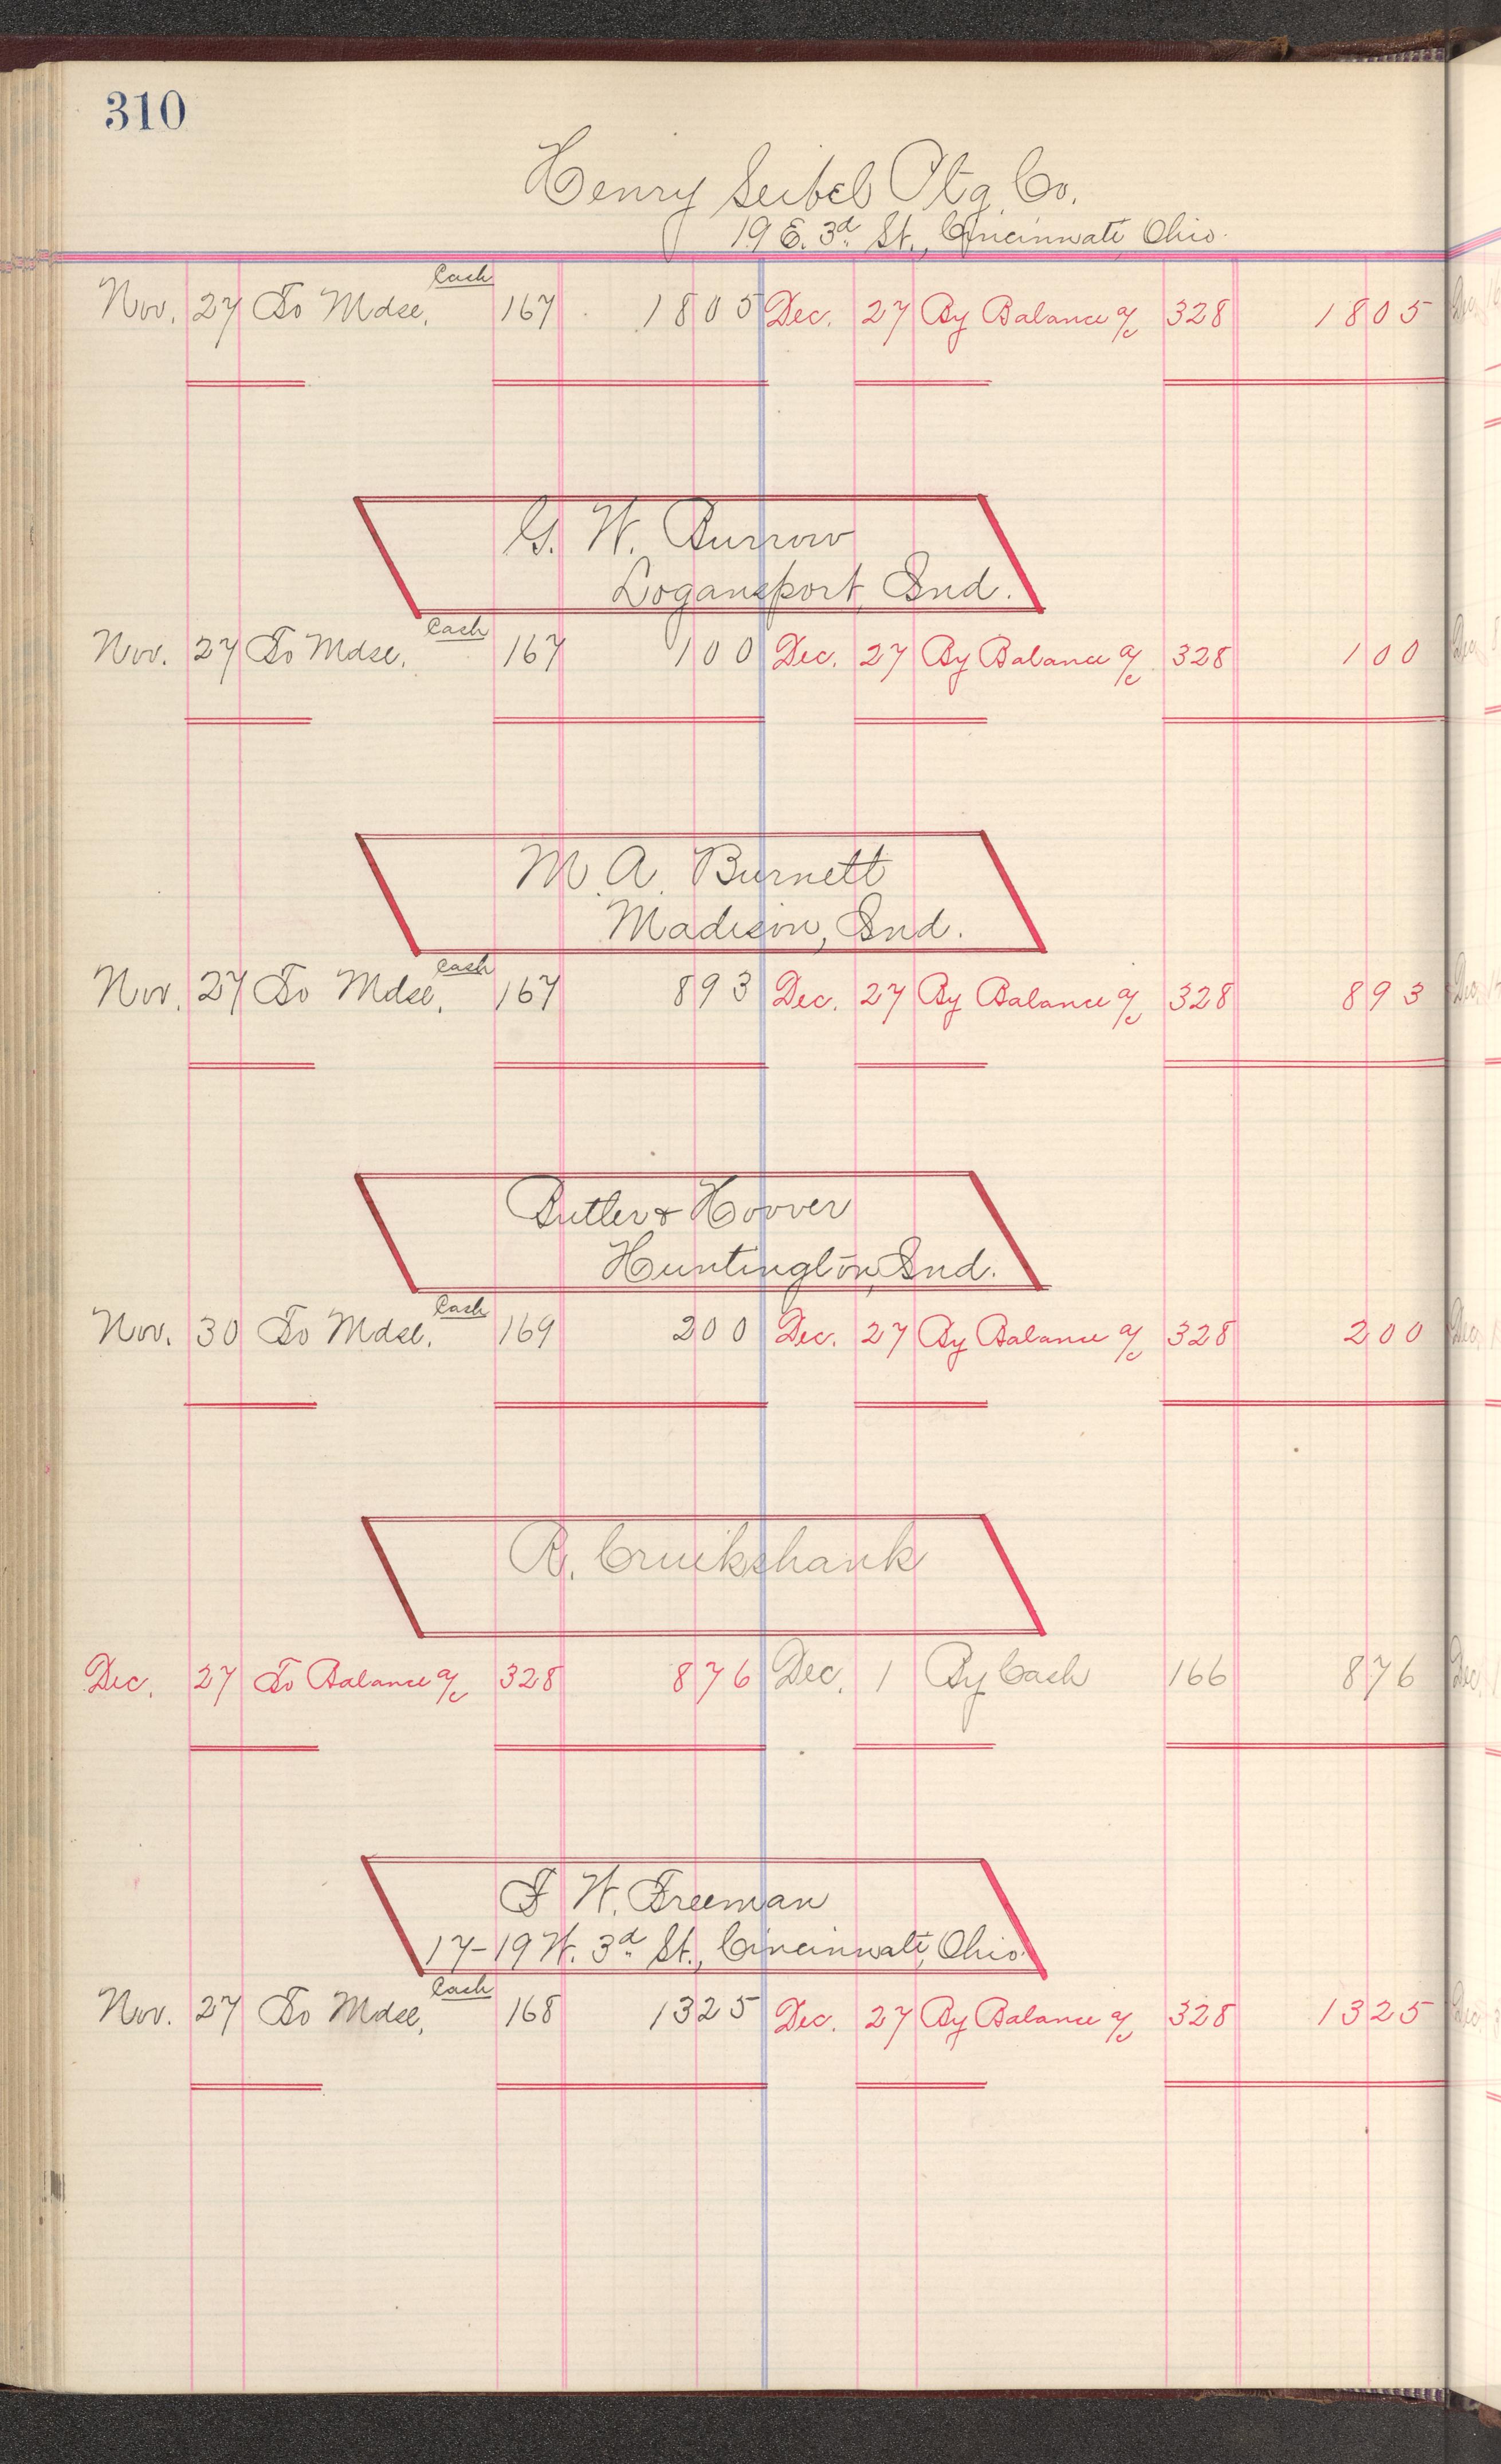 310
Henry Seibel Ptg. Co.
19 E. 3d St., Cincinnati, Ohio.
Nov. 27 To Mdse, Cash 167 1805 Dec. 27 By Balance a/c 328 1805
G. W. Burrow
Logansport, Ind.
Nov. 27 To Mdse, Cash 167 100 Dec. 27 By Balance a/c 328 100
M. A. Burnett
Madison, Ind.
Nov. 27 To Mdse, Cash 167 893 Dec. 27 By Balance a/c 328 893
Butler & Hoover
Huntington, Ind.
Nov. 30 To Mdse, Cash 169 200 Dec. 27 By Balance a/c 328 200
R. Cruikshank
Dec. 27 To Balance a/c 328 876 Dec. 1 By Cash 166 876
F. W. Freeman
17-19 W. 3d St., Cincinnati, Ohio.
Nov. 27 To Mdse, Cash 168 1325 Dec. 27 By Balance a/c 328 1325